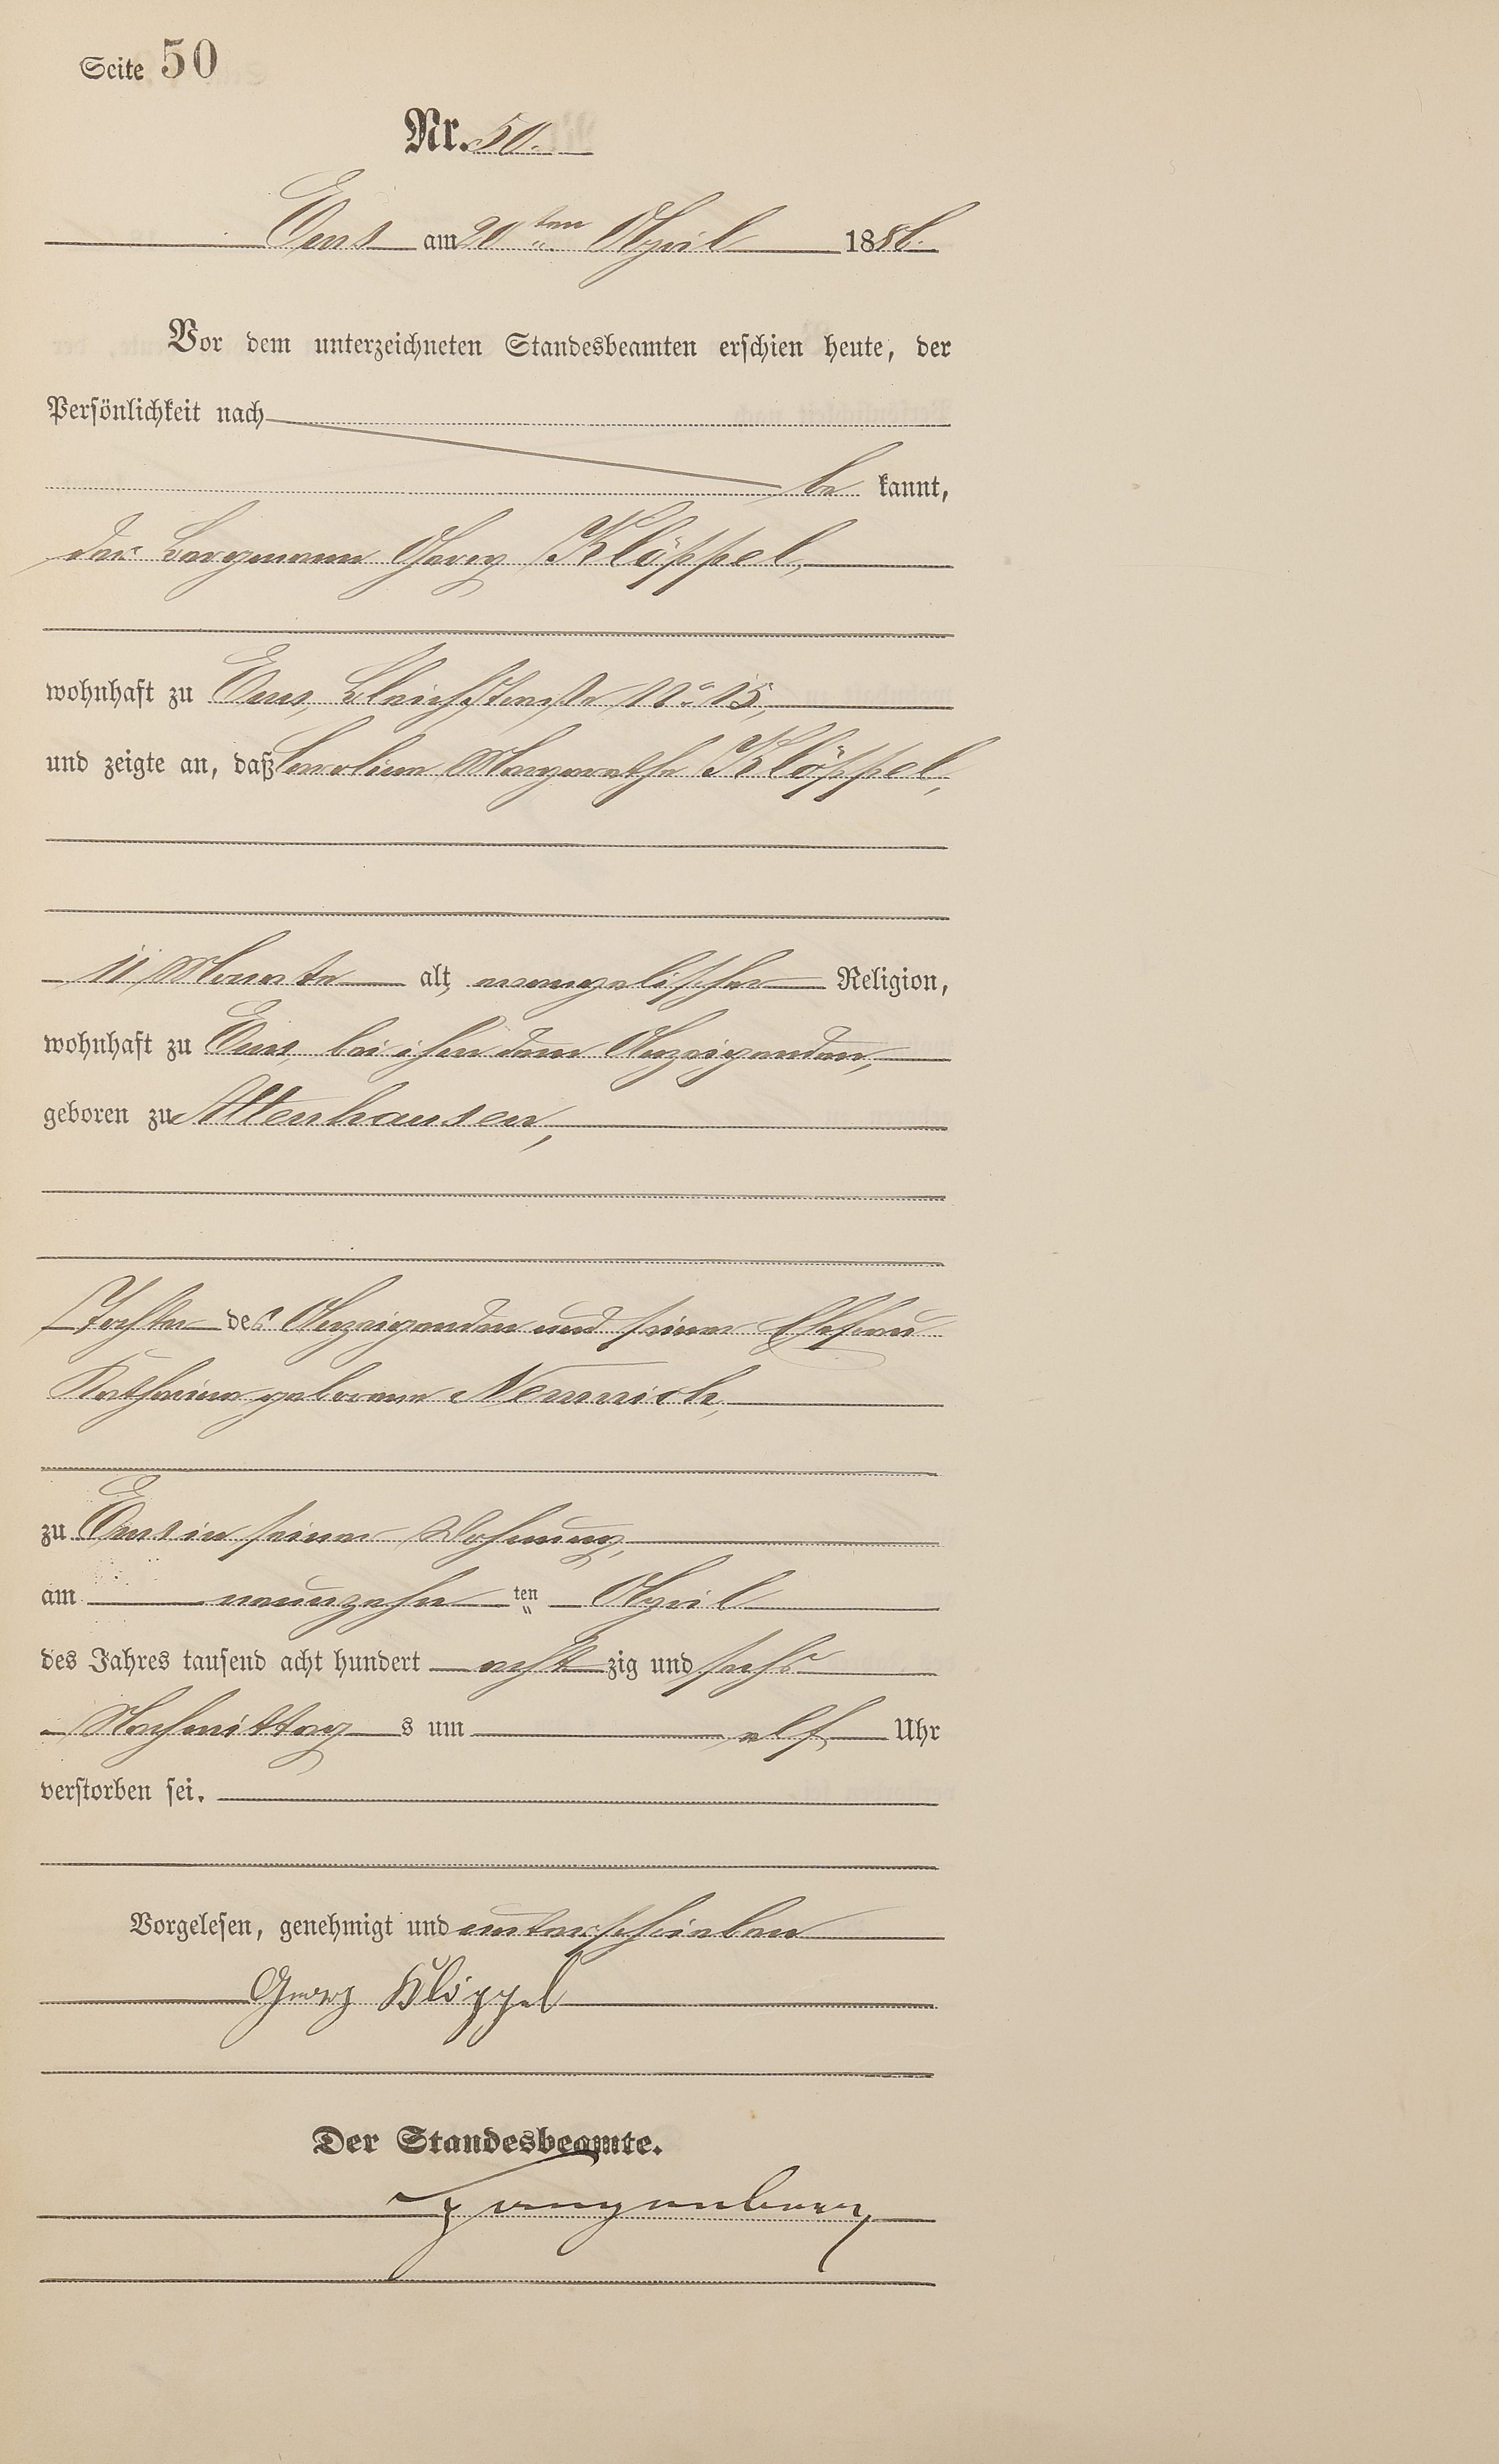 Seite 50
Nr. 50.
Ems am 20ten April 1886.
Vor dem unterzeichneten Standesbeamten erschien heute, der
Persönlichkeit nach
be kannt,
der Bergmann Georg Klöppel,
wohnhaft zu Ems, Bleichstraße No 15,
und zeigte an, daß Caroline Margarethe Klöppel,
11 Monate alt, evangelischer Religion,
wohnhaft zu Ems, bei ihm dem Anzeigenden,
geboren zu Altenhausen,
Tochter des Anzeigenden und seiner Ehefrau
Katharina geborene Nemnich,
zu Ems in seiner Wohnung,
am neunzehn ten April
des Jahres tausend acht hundert acht zig und sechs
Nachmittag s um elf Uhr
verstorben sei.
Vorgelesen, genehmigt und unterschrieben
Georg Klöppel
Der Standesbeamte.